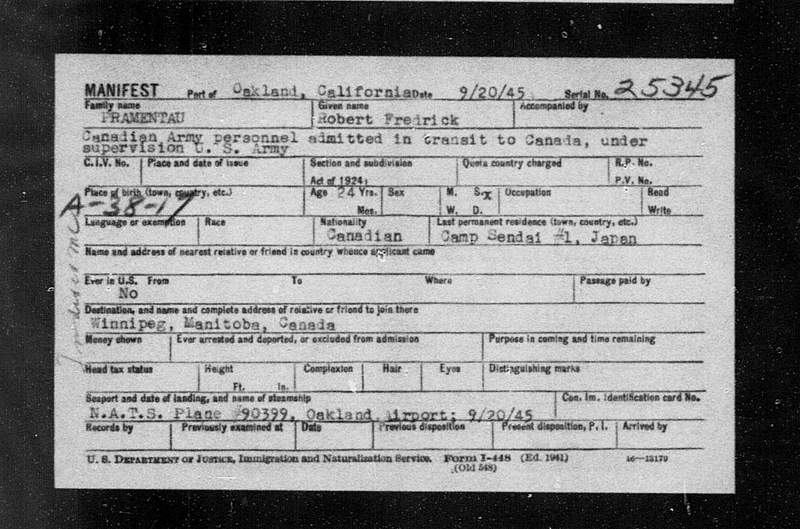 MANIFEST Port of Oakland, California Date 9/20/45 Serial No. 25345
Family name Given name Accompanied by
PRAMENTAU Robert Fredrick
Canadian Army personnel admitted in transit to Canada, under
supervision U. S. Army
C.I.V. No. Place and date of issue Section and subdivision Quota country charged R.P. No.
Act of 1924: P.V. No.
Place of birth (town, country, etc.) Age 24 Yrs. Sex M. S. X Occupation Read
A-38-17 Mos. W. D. Write
Language or exemption Race Nationality Last permanent residence (town, country, etc.)
Canadian Camp Sendai #1, Japan
Name and address of nearest relative or friend in country whence applicant came
Ever in U.S. From To Where Passage paid by
No
Destination, and name and complete address of relative or friend to join there
Winnipeg, Manitoba, Canada
Money shown Ever arrested and deported, or excluded from admission Purpose in coming and time remaining
Head tax status Height Complexion Hair Eyes Distinguishing marks
Ft. In.
Seaport and date of landing, and name of steamship Con. Im. Identification card No.
N.A.T.S. Plane #90399, Oakland Airport; 9/20/45
Records by Previously examined at Date Previous disposition Present disposition, P. I. Arrived by
U. S. DEPARTMENT OF JUSTICE, Immigration and Naturalization Service. Form I-448 (Ed. 1941) 16-13179
(Old 548)